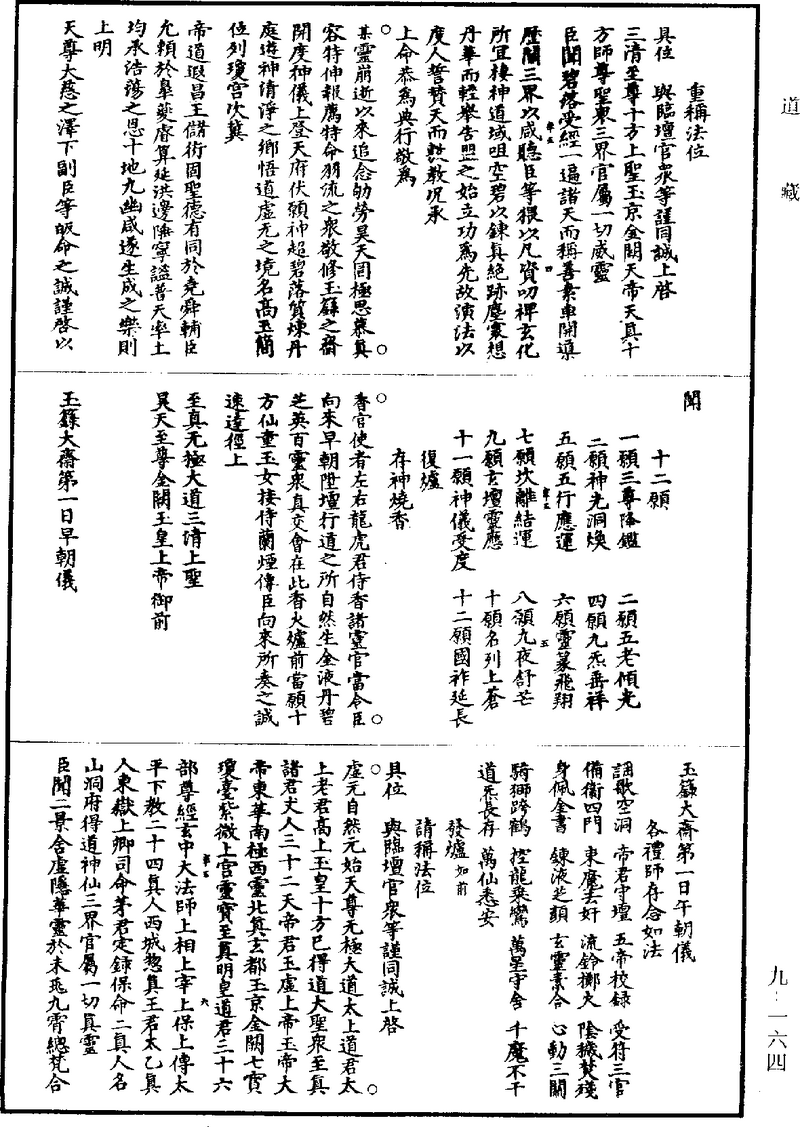 道藏
重稱法位
具位　與臨壇官衆等謹同誠上啓
三清至尊十方上聖玉京金闕天帝天真十
方師尊聖衆三界官屬一切威靈
臣聞碧落受經一遍諸天而稱善素車開導
歷關三界以咸聽臣等猥以凡資叨裨玄化
所宜棲神道域咀空碧以鍊真絕跡塵寰想
丹華而輕舉告盟之始立功爲先故演法以
度人誓贊天而敷教况承
上命恭爲典行敬爲
某靈崩逝以來追念劬勞昊天罔極思慕真
容特伸報薦特命羽流之衆敬修玉籙之齋
開度神儀上登天府伏願神超碧落質煉丹
庭遊神清淨之鄉悟道虛无之境名高玉簡
位列瓊宮次冀
帝道遐昌王儲術固聖德有同於堯舜輔臣
允賴於皐夔睿算延洪邊陲寧謐普天率土
均承浩蕩之恩十地九幽咸遂生成之樂則
上明
天尊大慈之澤下副臣等皈命之誠謹啓以
聞
十二願
一願三尊降鑑　二願五老傾光
三願神光洞煥　四願九炁垂祥
五願五行應運　六願靈篆飛翔
七願坎離結運　八願九夜舒芒
九願玄壇靈應　十願名列上蒼
十一願神儀受度　十二願國祚延長
復爐
存神燒香
香官使者左右龍虎君侍香諸靈官當令臣
向來早朝陞壇行道之所自然生金液丹碧
芝英百靈衆真交會在此香火爐前當願十
方仙童玉女接侍蘭煙傳臣向來所奏之誠
速達徑上
至真无極大道三清上聖
昊天至尊金闕玉皇上帝御前
玉籙大齋第一日早朝儀
玉籙大齋第一日午朝儀
各禮師存念如法
謌歌空洞　帝君守壇　五帝校錄　受符三官
備衛四門　東魔去奸　流鈴擲火　陰穢焚殘
身佩金書　鍊液芝顏　玄靈素合　心動三關
騎獅跨鶴　控龍乘鸞　萬星守舍　千魔不干
道炁長存　萬仙悉安
發爐如前
請稱法位
具位　與臨壇官衆等謹同誠上啓
虛元自然元始天尊无極大道太上道君太
上老君高上玉皇十方已得道大聖衆至真
諸君丈人三十二天帝君玉虛上帝玉帝大
帝東華南極西靈北真玄都玉京金闕七寶
瓊臺紫微上宮靈寶至真明皇道君三十六
部尊經玄中大法師上相上宰上保上傅太
平下教二十四真人西城惣真王君太乙真
人東嶽上卿司命茅君定錄保命二真人名
山洞府得道神仙三界官屬一切真靈
臣聞二景含虛隱華靈於未兆九霄總梵合
九—一六四